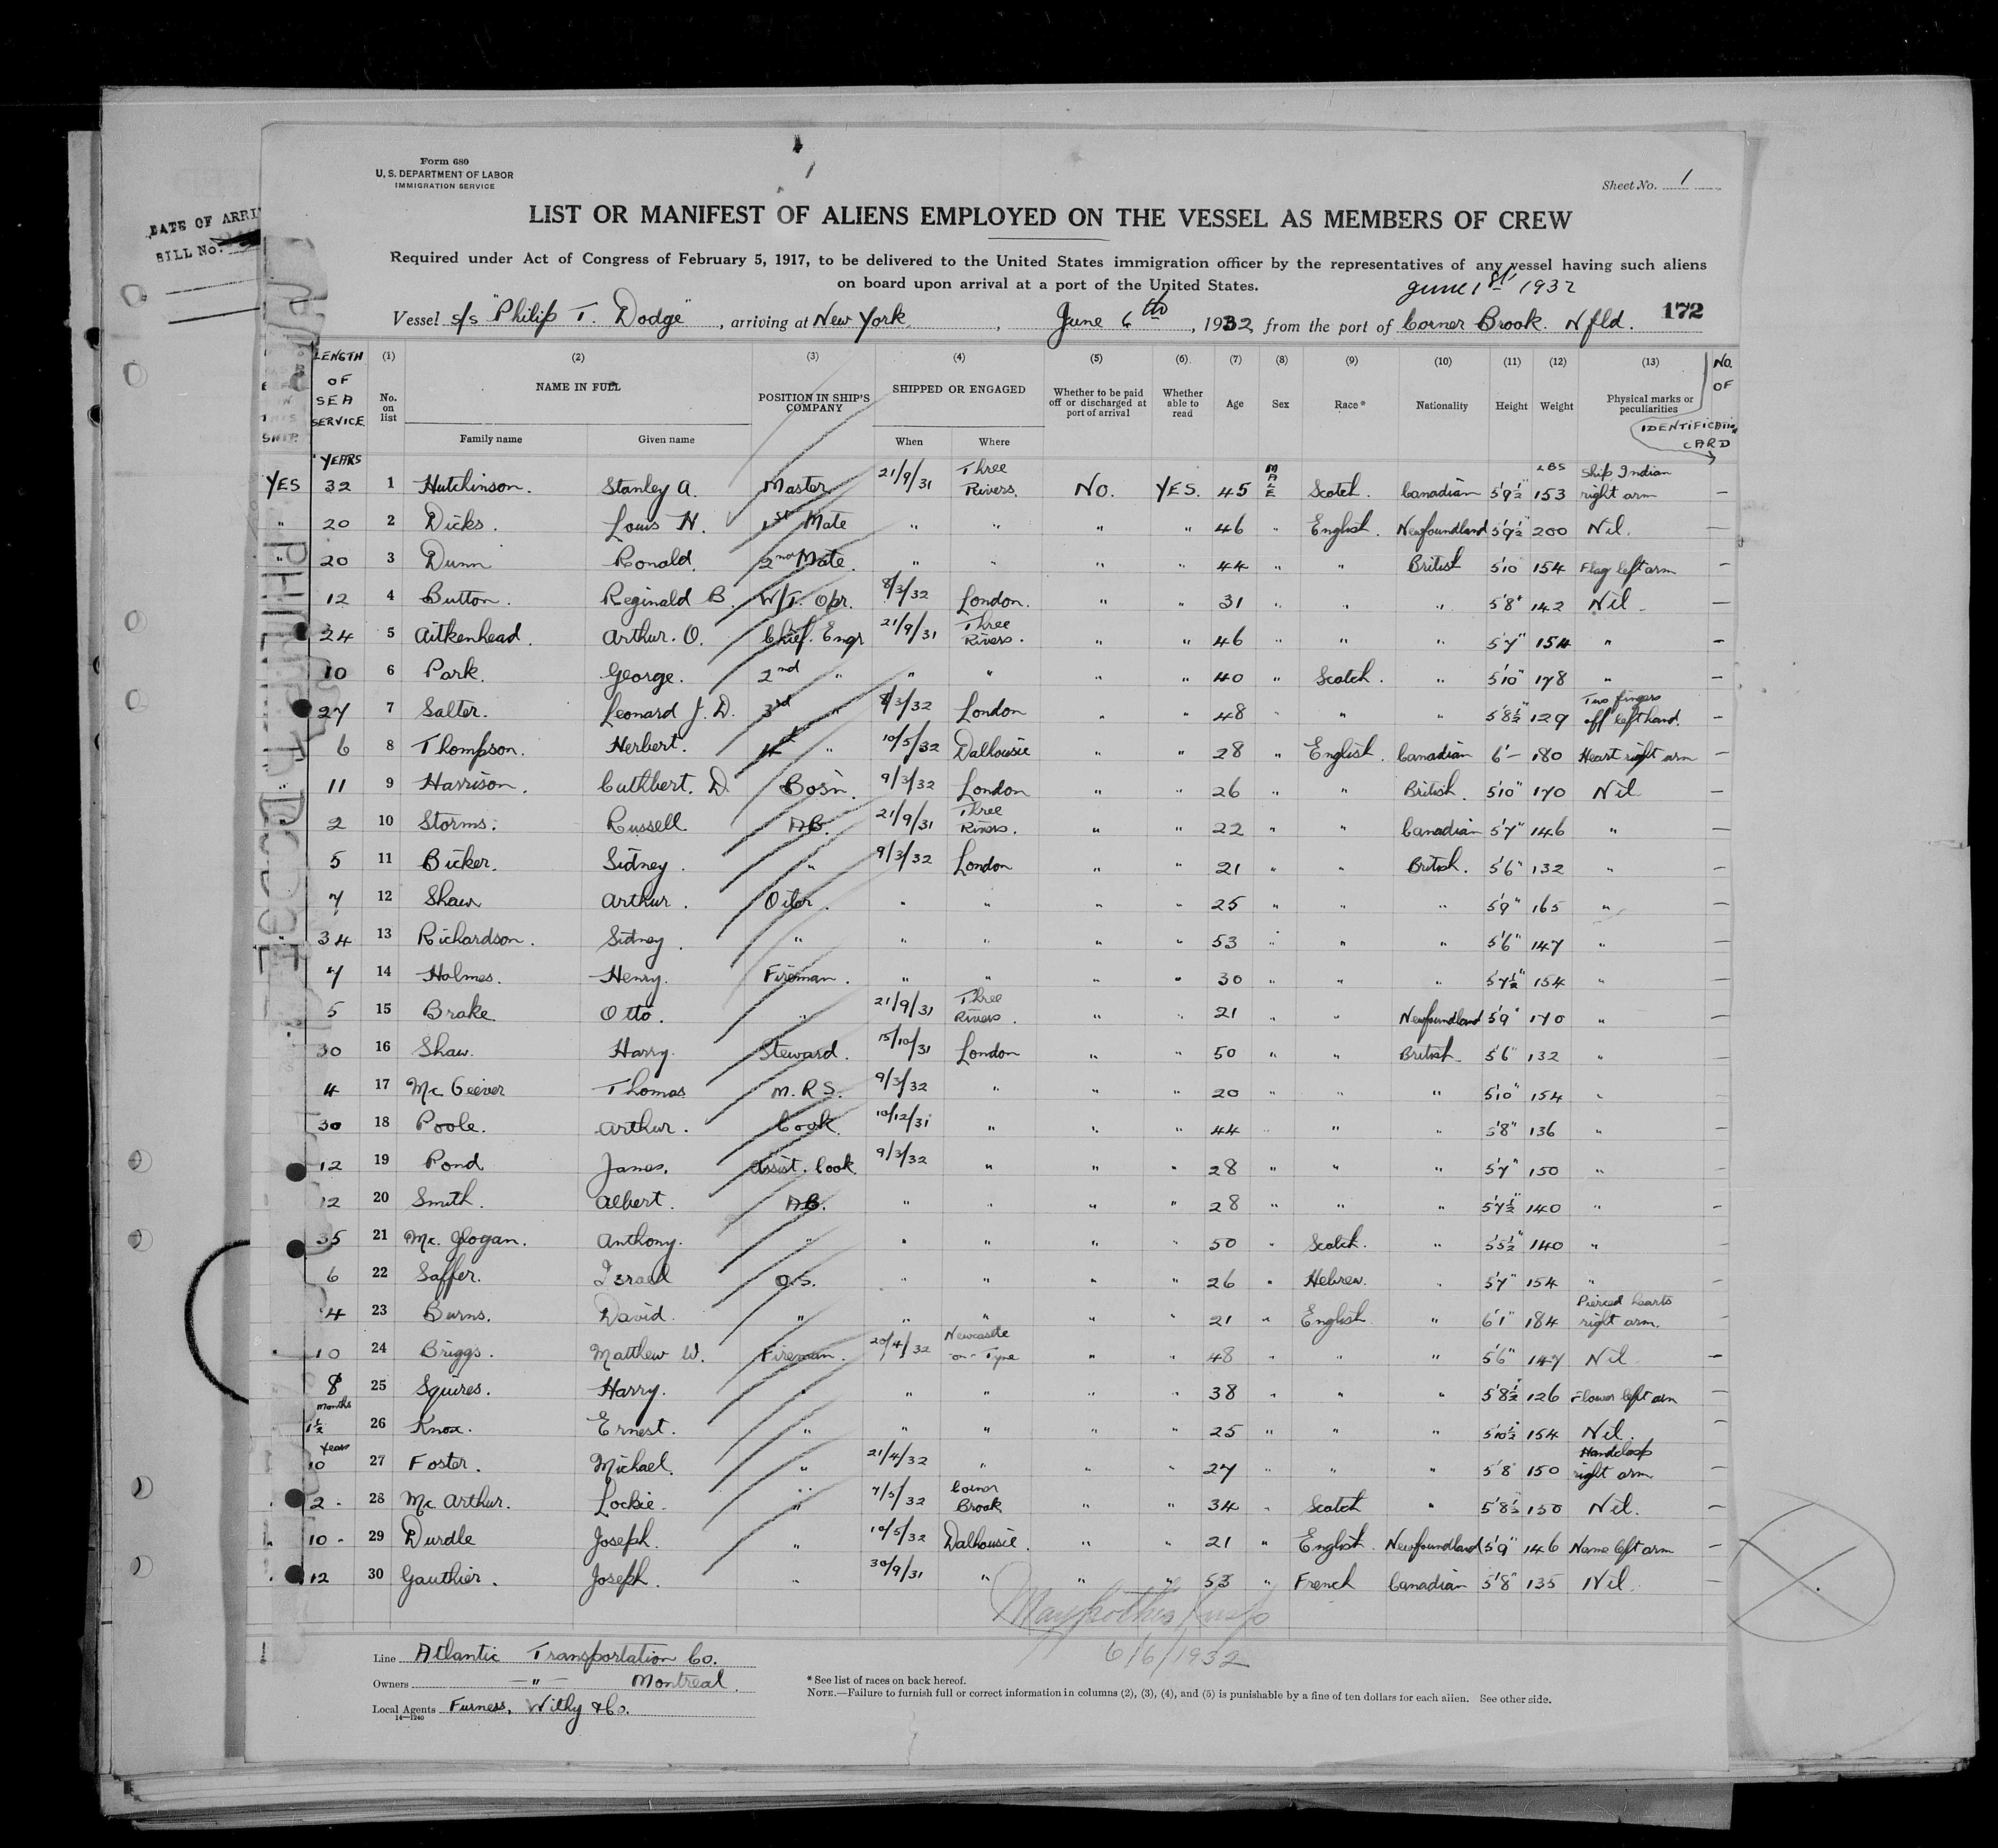 DATE OF ARRI
BILL No.
Form 680
U. S. DEPARTMENT OF LABOR
IMMIGRATION SERVICE
1
Sheet No. 1
LIST OR MANIFEST OF ALIENS EMPLOYED ON THE VESSEL AS MEMBERS OF CREW
Required under Act of Congress of February 5, 1917, to be delivered to the United States immigration officer by the representatives of any vessel having such aliens
on board upon arrival at a port of the United States.
June 1st 1932
Vessel s/s "Philip T. Dodge", arriving at New York, June 6th, 1932, from the port of Corner Brook. Nfld. 172
LENGTH OF SEA SERVICE (1) No. on list (2) NAME IN FULL Family name Given name (3) POSITION IN SHIP'S COMPANY (4) SHIPPED OR ENGAGED When Where (5) Whether to be paid off or discharged at port of arrival (6) Whether able to read (7) Age (8) Sex (9) Race* (10) Nationality (11) Height (12) Weight (13) Physical marks or peculiarities NO. OF IDENTIFICATION CARD
YEARS LBS
YES 32 1 Hutchinson. Stanley A. Master 21/9/31 Three Rivers. No. YES. 45 MALE Scotch. Canadian 5'9½" 153 Ship Indian right arm —
" 20 2 Dicks. Louis H. 1st Mate " " " " 46 " English. Newfoundland 5'9½" 200 Nil. —
" 20 3 Dunn Ronald. 2nd Mate. " " " " 44 " " British 5'10 154 Flag left arm —
12 4 Button. Reginald B. W/T. Opr. 8/3/32 London. " " 31 " " " 5'8" 142 Nil —
24 5 Aitkenhead. Arthur. O. Chief. Engr 21/9/31 Three Rivers. " " 46 " " " 5'7" 154 " —
10 6 Park. George. 2nd " " " " " 40 " Scotch. " 5'10" 178 " —
27 7 Salter. Leonard J. D. 3rd " 8/3/32 London " " 48 " " " 5'8½" 129 Two fingers off left hand. —
6 8 Thompson. Herbert. 4th " 10/5/32 Dalhousie " " 28 " English. Canadian 6'— 180 Heart right arm —
11 9 Harrison. Cuthbert. D Bosn. 9/3/32 London " " 26 " " British. 5'10" 170 Nil —
2 10 Storms. Russell. AB. 21/9/31 Three Rivers. " " 22 " " Canadian 5'7" 146 " —
5 11 Bicker. Sidney. " 9/3/32 London " " 21 " " British. 5'6" 132 " —
7 12 Shaw Arthur. Oiler. " " " " 25 " " " 5'9" 165 " —
34 13 Richardson. Sidney. " " " " " 53 " " " 5'6" 147 " —
7 14 Holmes. Henry. Fireman. " " " " 30 " " " 5'7½" 154 " —
5 15 Brake Otto. " 21/9/31 Three Rivers. " " 21 " " Newfoundland 5'9" 170 " —
30 16 Shaw. Harry. Steward. 15/10/31 London " " 50 " " British 5'6" 132 " —
4 17 Thomas M. R S. 9/3/32 " " " 20 " " " 5'10" 154 " —
30 18 Poole. Arthur. Cook. 10/12/31 " " " 44 " " " 5'8" 136 " —
12 19 Pond James. Assist. Cook 9/3/32 " " " 28 " " " 5'7" 150 " —
12 20 Smith. Albert. AB. " " " " 28 " " " 5'7½" 140 " —
35 21 Mc. Glogan. Anthony. " " " " " 50 " Scotch. " 5'5½" 140 " —
6 22 Saffer. Israel O.S. " " " " 26 " Hebrew. " 5'7" 154 " —
4 23 Burns. David. " " " " " 21 " English " 6'1" 184 Pierced hearts right arm. —
10 24 Briggs. Matthew W. Fireman. 20/4/32 Newcastle on-Tyne " " 48 " " " 5'6" 147 Nil. —
8 25 Squires. Harry. " " " " " 38 " " " 5'8½" 126 Flower left arm —
months 1½ 26 Knox. Ernest. " " " " " 25 " " " 5'10½" 154 Nil. —
years 10 27 Foster. Michael. " 21/4/32 " " " 27 " " " 5'8 150 Handclasp right arm —
2 - 28 Mc Arthur. Lockie. " 7/5/32 Corner Brook " " 34 " Scotch " 5'8½ 150 Nil. —
10 - 29 Durdle Joseph. " 10/5/32 Dalhousie. " " 21 " English. Newfoundland 5'9" 146 Name left arm —
12 30 Gauthier. Joseph. " 30/9/31 " " " 53 " French Canadian 5'8" 135 Nil. —
6/6/1932
Line Atlantic Transportation Co.
Owners —"— Montreal.
Local Agents Furness, Withy & Co.
14—1240
* See list of races on back hereof.
NOTE.—Failure to furnish full or correct information in columns (2), (3), (4), and (5) is punishable by a fine of ten dollars for each alien. See other side.
PHILIP T. DODGE